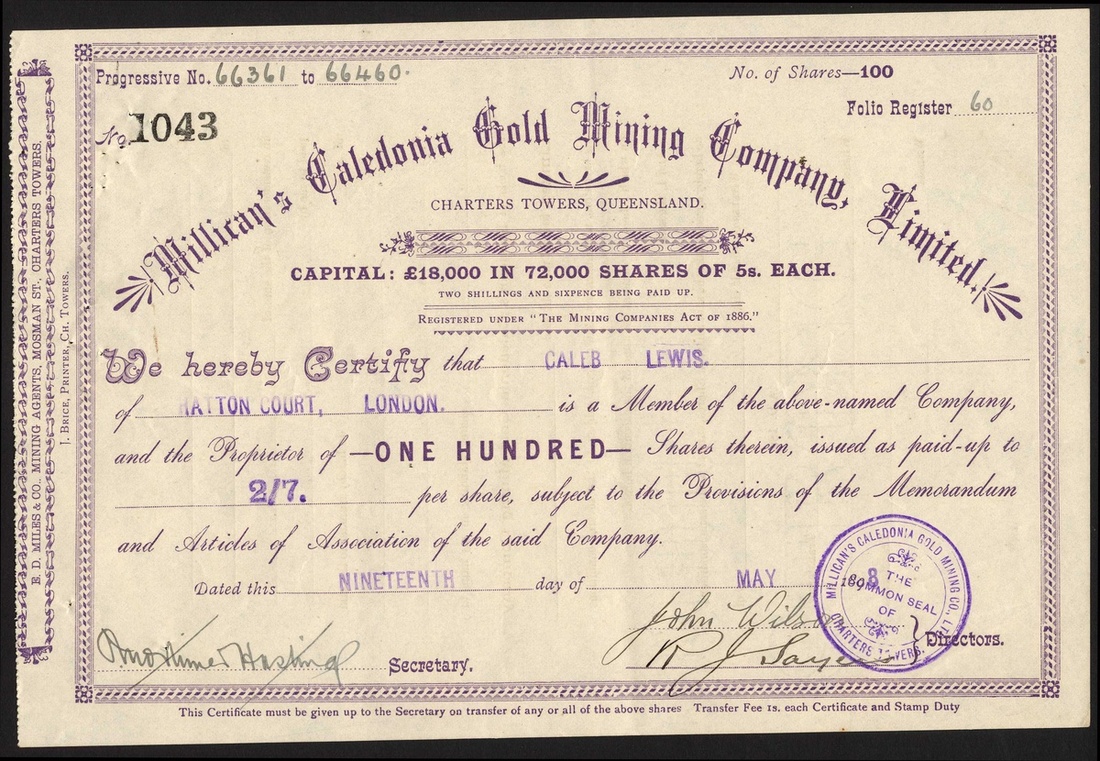 Progressive No. 66361 to 66460.
No. of Shares—100
Folio Register 60
No. 1043
Millican's Caledonia Gold Mining Company, Limited.
CHARTERS TOWERS, QUEENSLAND.
CAPITAL: £18,000 IN 72,000 SHARES OF 5s. EACH.
TWO SHILLINGS AND SIXPENCE BEING PAID UP.
REGISTERED UNDER "THE MINING COMPANIES ACT OF 1886."
We hereby Certify that CALEB LEWIS.
of HATTON COURT, LONDON. is a Member of the above-named Company,
and the Proprietor of —ONE HUNDRED— Shares therein, issued as paid-up to
2/7. per share, subject to the Provisions of the Memorandum
and Articles of Association of the said Company.
Dated this NINETEENTH day of MAY 1898
MILLICAN'S CALEDONIA GOLD MINING CO., LTD.
THE
COMMON SEAL
OF
CHARTERS TOWERS.
John Wilson
R J Sayers
Directors.
Mortimer Hasting
Secretary.
This Certificate must be given up to the Secretary on transfer of any or all of the above shares Transfer Fee 1s. each Certificate and Stamp Duty
E. D. MILES & CO. MINING AGENTS, MOSMAN ST. CHARTERS TOWERS.
J. BRICE, PRINTER, CH. TOWERS.